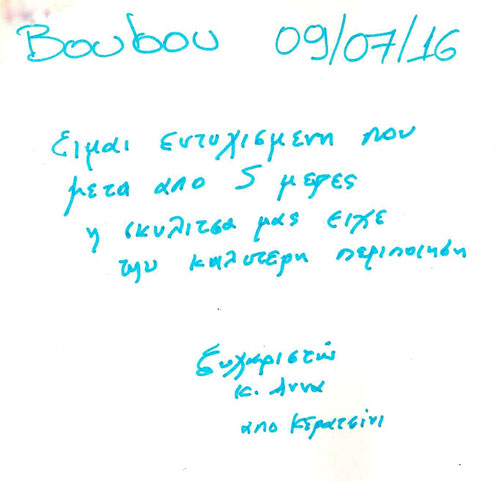 Βουβου 09/07/16
Ειμαι ευτυχισμενη που
μετα απο 5 μερες
η σκυλιτσα μας ειχε
την καλυτερη περιποιηση
Ευχαριστώ
κ. Αννα
απο Κερατσινι